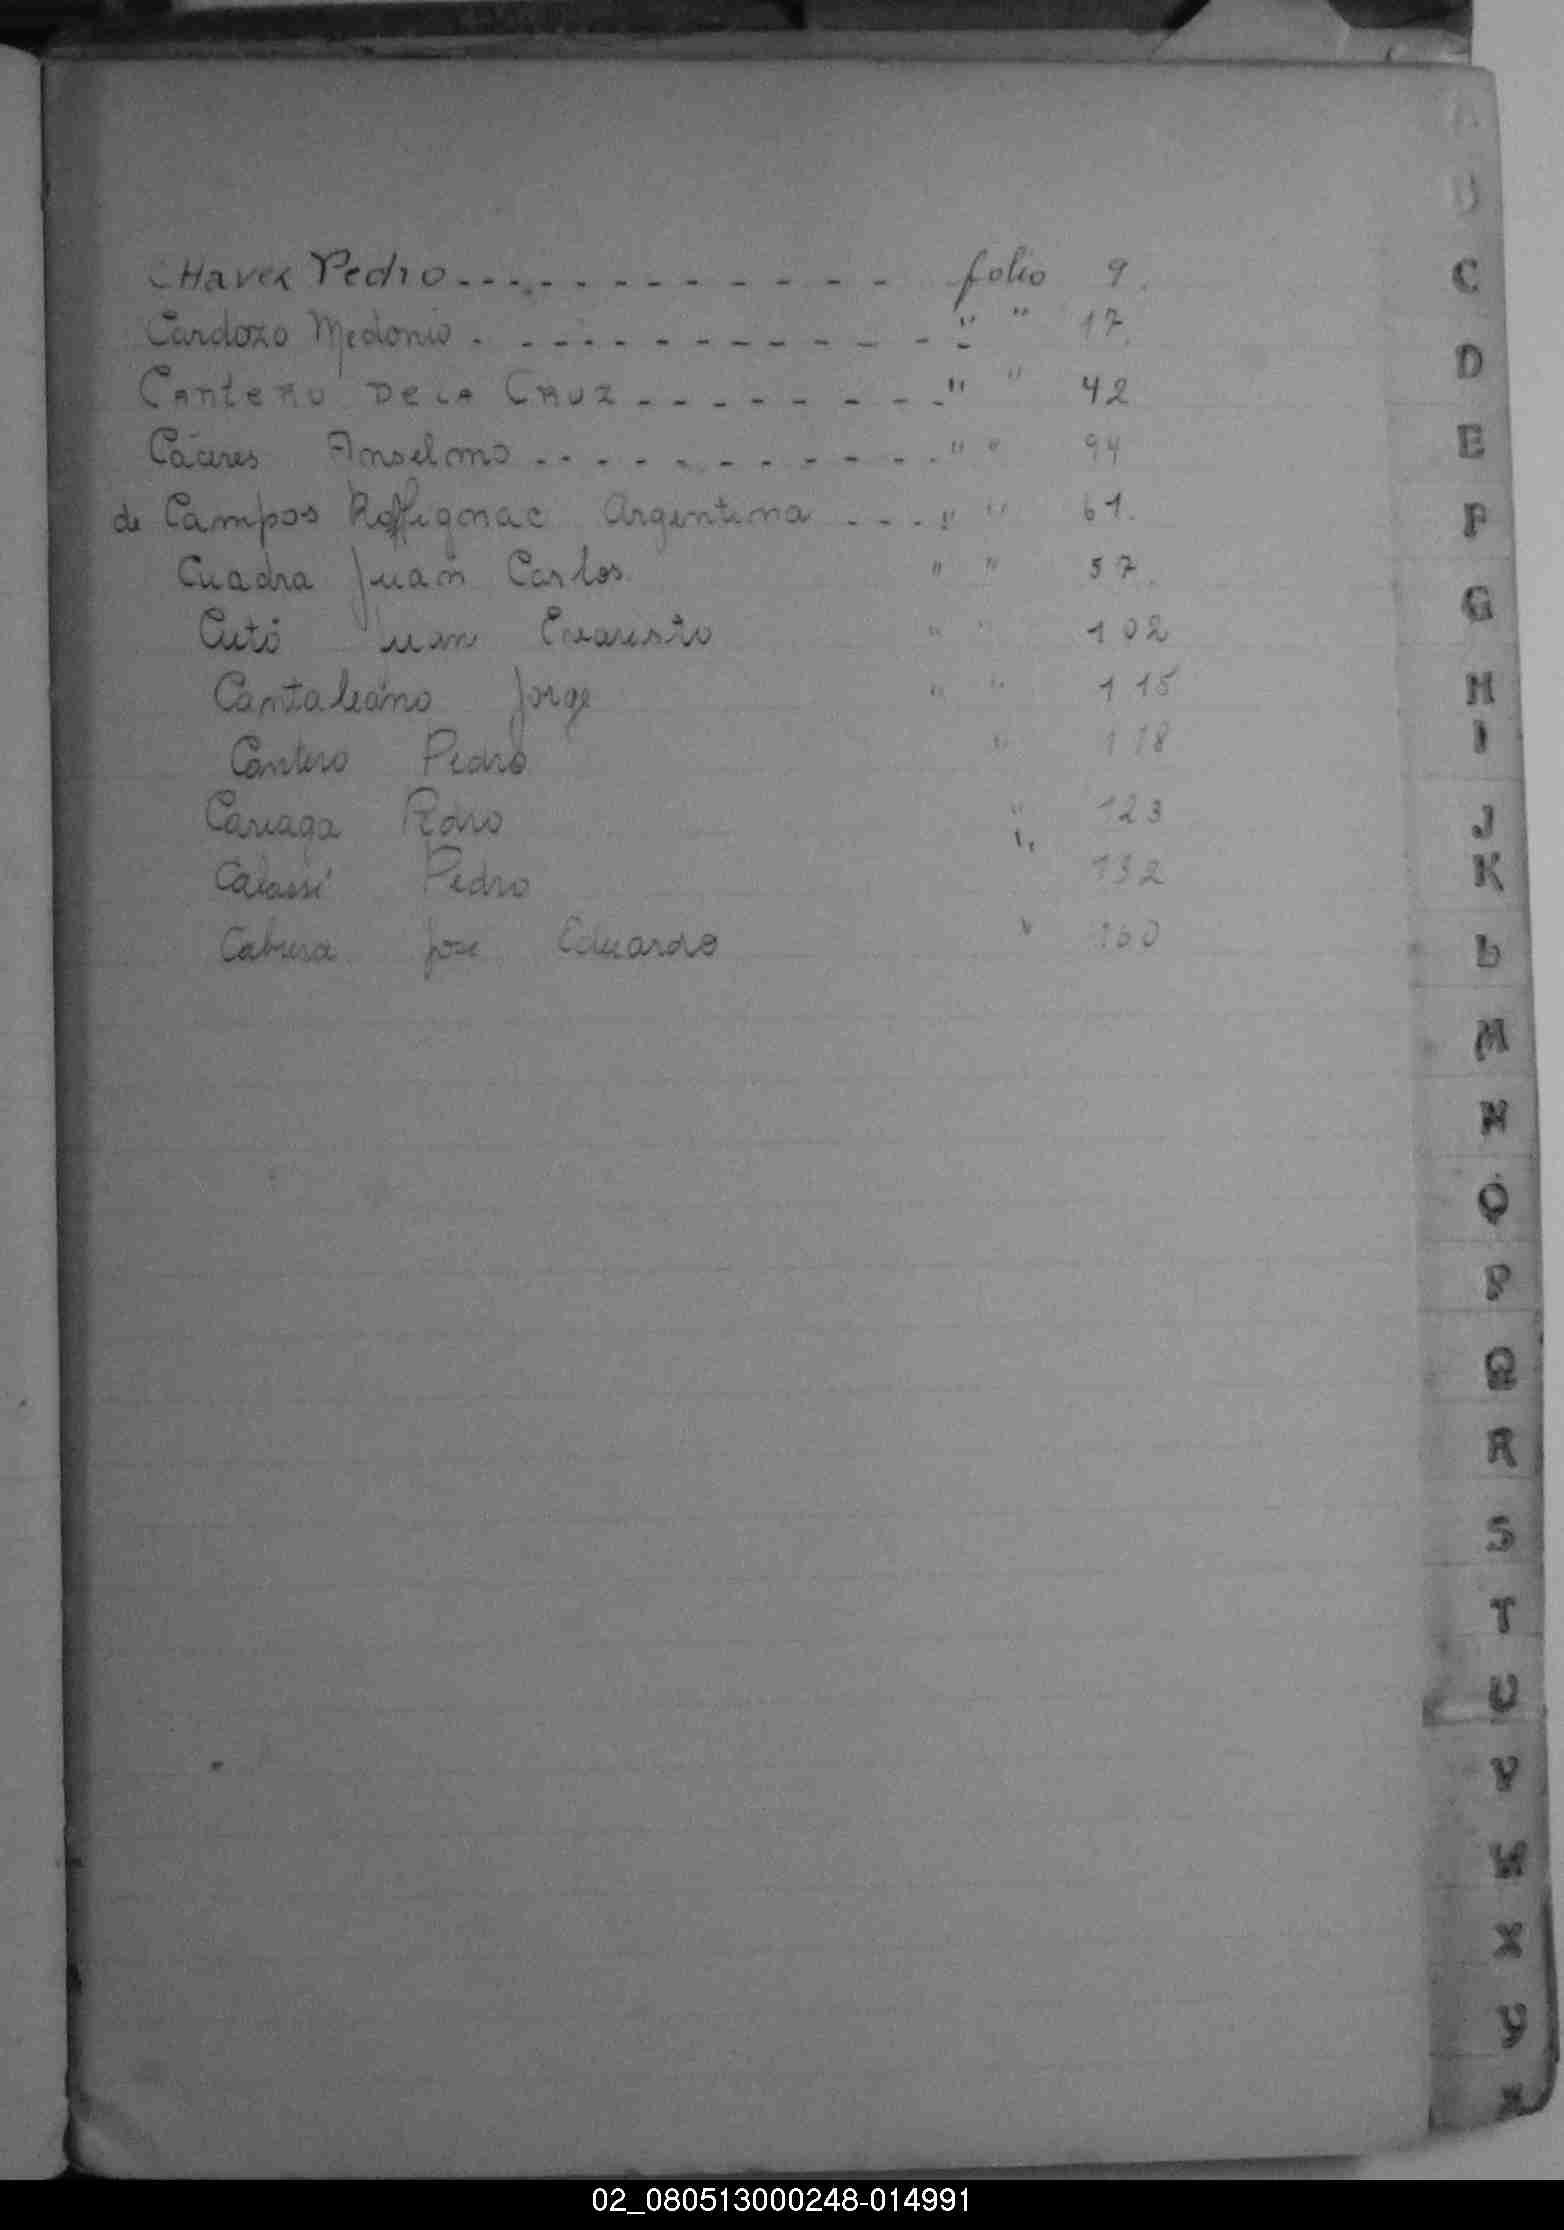 CHaveR Pedro ------------- folio 9.
Cardozo Medonio ------------- " " 17.
CANTERO DE LA CRUZ --------- " " 42
Cáceres Anselmo ------------ " " 94
de Campos Roffignac Argentina ---- " " 61.
Cuadra Juan Carlos " " 57.
Cutó Juan Evaristo " " 102
Cantaleano Jorge " " 115
Cantero Pedro " 118
Careaga Pedro " 123
Pedro " 132
Cabrera Jose Eduardo " 160
C
D
E
F
G
H
I
J
K
L
M
N
O
P
Q
R
S
T
U
V
W
X
Y
02_080513000248-014991